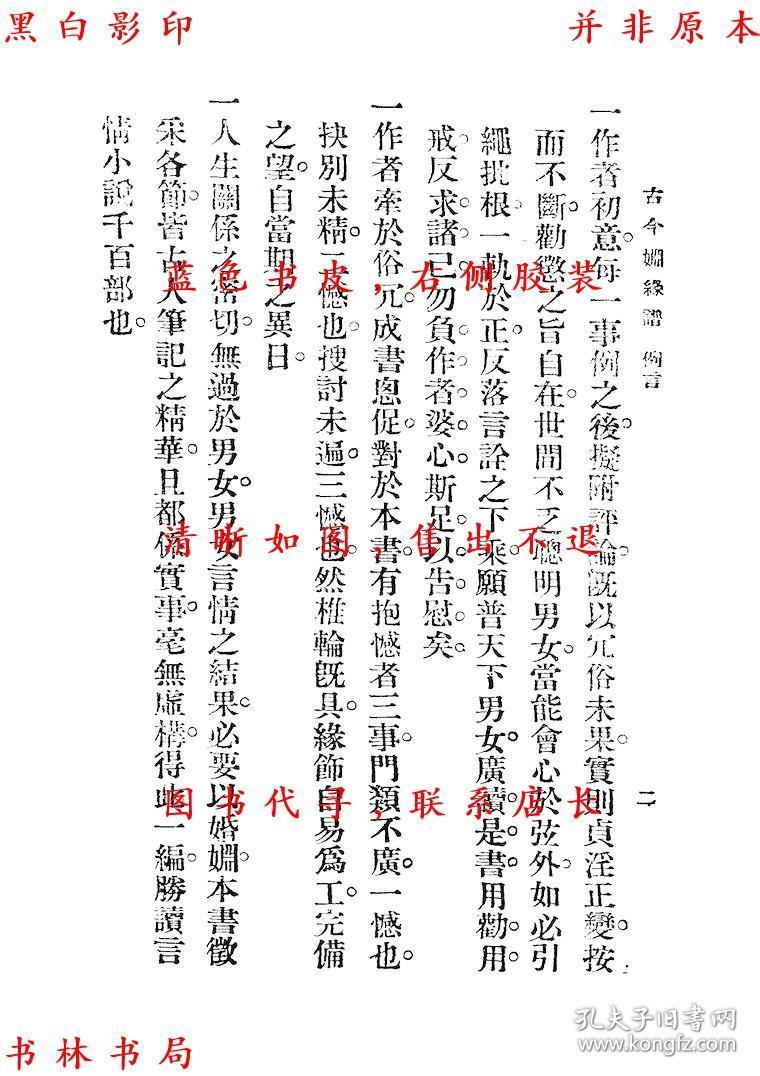 黑白影印
并非原本
古今婣緣譜 例言
二
一作者初意。每一事例之後。擬附評論。旣以冗俗未果。實則貞淫正變。按
而不斷。勸懲之旨自在。世間不乏聰明男女。當能會心於弦外。如必引
繩批根。一軌於正。反落言詮之下乘。願普天下男女。廣讀是書。用勸用
戒。反求諸己。勿負作者婆心。斯足以告慰矣。
一作者牽於俗冗。成書悤促。對於本書。有抱憾者三事。門類不廣。一憾也。
抉別未精。二憾也。搜討未遍。三憾也。然椎輪旣具。緣飾自易爲工。完備
之望。自當期之異日。
一人生關係之密切。無過於男女。男女言情之結果。必要以婚婣。本書徵
釆各節。皆古人筆記之精華。且都係實事。毫無虛構。得此一編。勝讀言
情小說千百部也。
蓝色书皮，右侧胶装
清晰如图，售出不退
图书代寻，联系店长
书林书局
孔夫子旧书网
www.kongfz.com